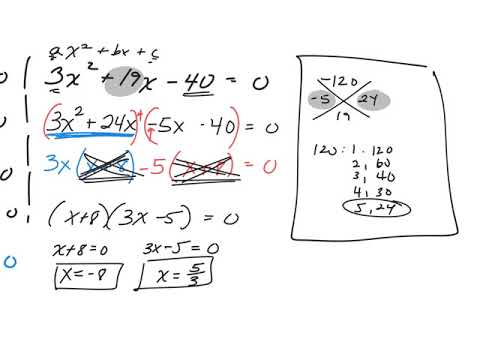 ax² + bx + c
3x² + 19x - 40 = 0
(3x² + 24x)+(-5x - 40) = 0
3x(x+8) -5(x+8) = 0
(x+8)(3x-5) = 0
x+8=0 3x-5=0
x=-8 x=5/3
0
0
0
0
-120
-5 24
19
120: 1. 120
2, 60
3, 40
4, 30
5, 24